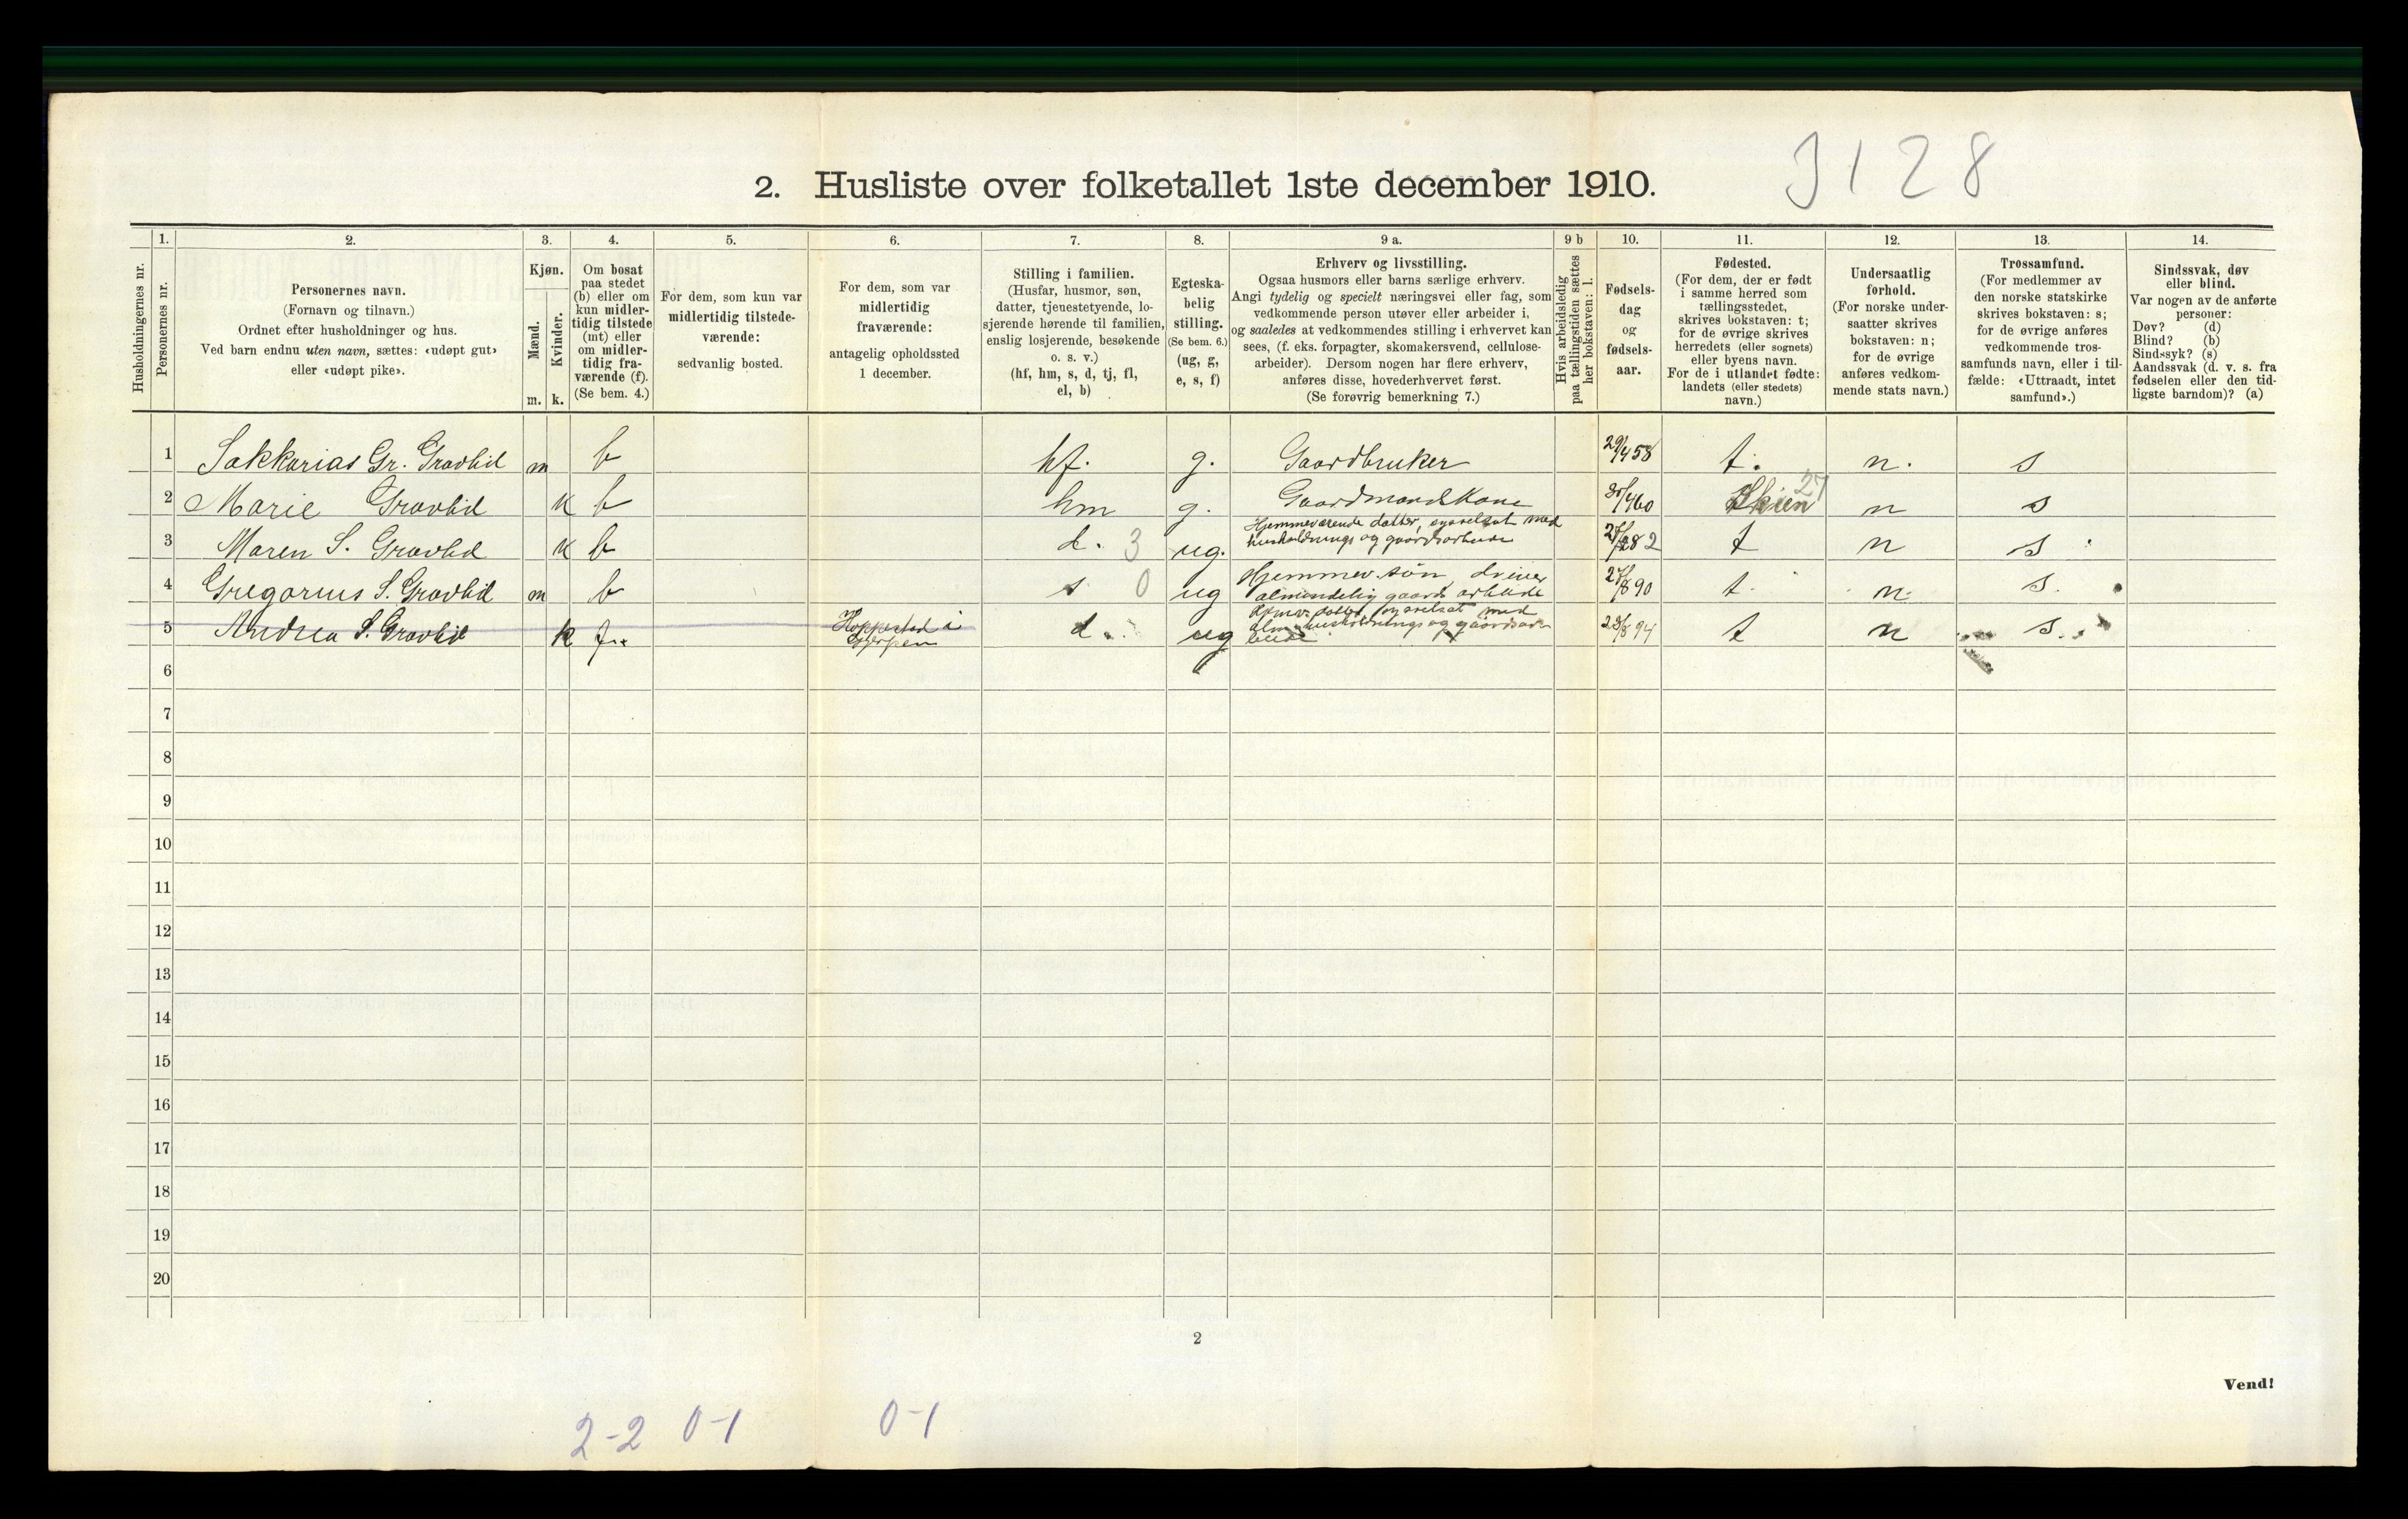 3128
2. Husliste over folketallet 1ste december 1910.
Husholdningernes nr.
1. Personernes nr.
2. Personernes navn.
(Fornavn og tilnavn.)
Ordnet efter husholdninger og hus.
Ved barn endnu uten navn, sættes: «udøpt gut»
eller «udøpt pike».
3. Kjøn.
Mænd. m.
Kvinder. k.
4. Om bosat
paa stedet
(b) eller om
kun midler-
tidig tilstede
(mt) eller
om midler-
tidig fra-
værende (f).
(Se bem. 4.)
5. For dem, som kun var
midlertidig tilstede-
værende:
sedvanlig bosted.
6. For dem, som var
midlertidig
fraværende:
antagelig opholdssted
1 december.
7. Stilling i familien.
(Husfar, husmor, søn,
datter, tjenestetyende, lo-
sjerende hørende til familien,
enslig losjerende, besøkende
o. s. v.)
(hf, hm, s, d, tj, fl,
el, b)
8. Egteska-
belig
stilling.
(Se bem. 6.)
(ug, g,
e, s, f)
9 a. Erhverv og livsstilling.
Ogsaa husmors eller barns særlige erhverv.
Angi tydelig og specielt næringsvei eller fag, som
vedkommende person utøver eller arbeider i,
og saaledes at vedkommendes stilling i erhvervet kan
sees, (f. eks. forpagter, skomakersvend, cellulose-
arbeider). Dersom nogen har flere erhverv,
anføres disse, hovederhvervet først.
(Se forøvrig bemerkning 7.)
9 b Hvis arbeidsledig
paa tællingstiden sættes
her bokstaven: l.
10. Fødsels-
dag
og
fødsels-
aar.
11. Fødested.
(For dem, der er født
i samme herred som
tællingsstedet,
skrives bokstaven: t;
for de øvrige skrives
herredets (eller sognets)
eller byens navn.
For de i utlandet fødte:
landets (eller stedets)
navn.)
12. Undersaatlig
forhold.
(For norske under-
saatter skrives
bokstaven: n;
for de øvrige
anføres vedkom-
mende stats navn.)
13. Trossamfund.
(For medlemmer av
den norske statskirke
skrives bokstaven: s;
for de øvrige anføres
vedkommende tros-
samfunds navn, eller i til-
fælde: «Uttraadt, intet
samfund».)
14. Sindssvak, døv
eller blind.
Var nogen av de anførte
personer:
Døv? (d)
Blind? (b)
Sindssyk? (s)
Aandssvak (d. v. s. fra
fødselen eller den tid-
ligste barndom)? (a)
1 Sakkarias Gr. Gravlid m b hf. g. Gaardbruker 29/4 58 t. n. s
2 Marie Gravlid k b hm g. Gaardmandskone /4 60 Skien 27 n s
3 Maren S. Gravlid k b d. 3 ug. Hjemmeværende datter, sysselsat med
husholdnings og gaardsarbeide 82 t n s
4 Gregorius S. Gravlid m b s. 0 ug Hjemmev. søn, driver
almindelig gaards arbeide /8 90 t. n. s.
5 Andrea S. Gravlid k f. Hoppestad i
Gjerpen d. ug datter sysselsat med
alm husholdnings og gaardsar-
beide /8 94 t n s.
6
7
8
9
10
11
12
13
14
15
16
17
18
19
20
2
Vend!
2-2 0-1 0-1